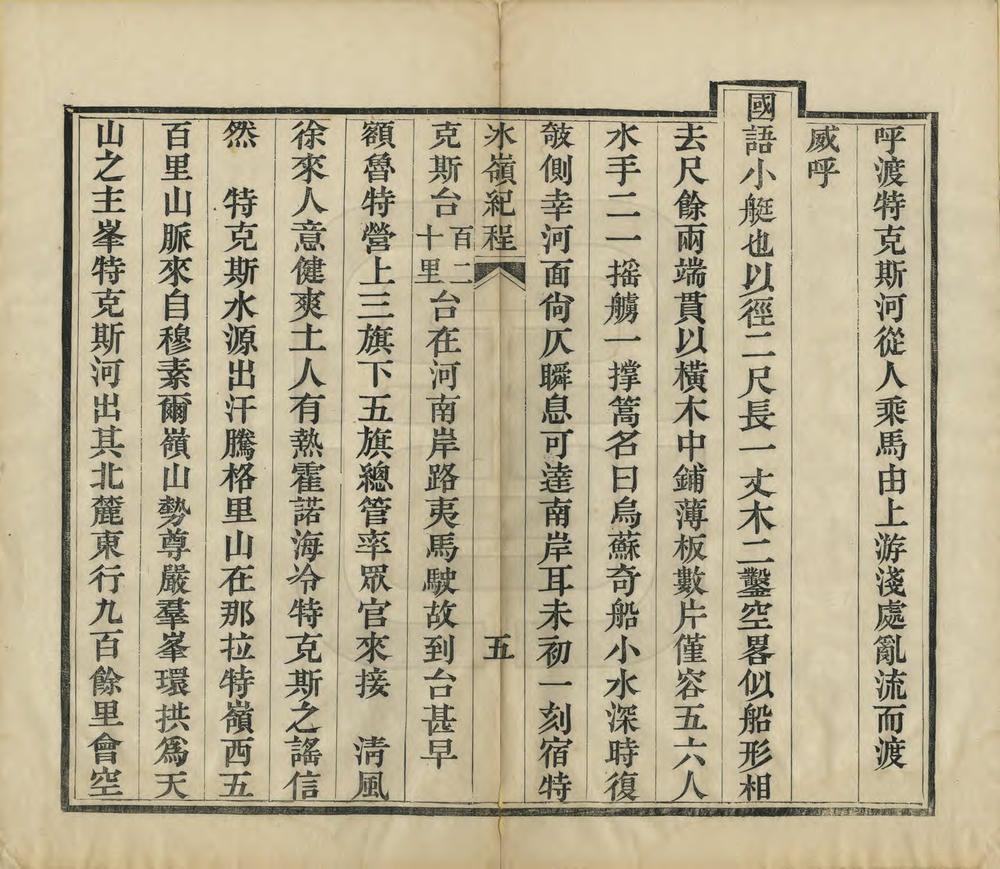 呼渡特克斯河從人乘馬由上游淺處亂流而渡
威呼
國語小艇也以徑二尺長一丈木二鑿空畧似船形相
去尺餘兩端貫以橫木中鋪薄板數片僅容五六人
水手二一搖艣一撐篙名曰烏蘇奇船小水深時復
攲側幸河面尙仄瞬息可達南岸耳未初一刻宿特
冰嶺紀程
五
克斯台百二十里台在河南岸路夷馬駛故到台甚早
額魯特營上三旗下五旗總管率眾官來接　清風
徐來人意健爽土人有熱霍諾海冷特克斯之謠信
然　特克斯水源出汗騰格里山在那拉特嶺西五
百里山脈來自穆素爾嶺山勢尊嚴羣峯環拱爲天
山之主峯特克斯河出其北麓東行九百餘里會空